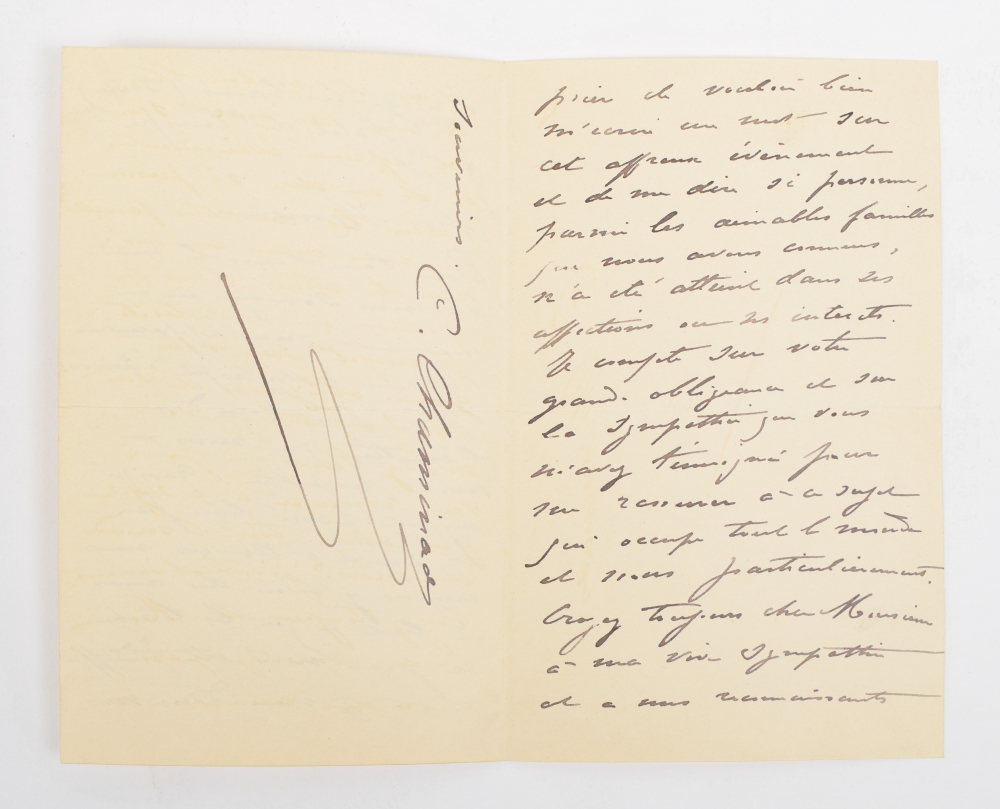 prier de vouloir bien
m'écrire un mot sur
cet affreux évènement
et de me dire si personne,
parmi les aimables familles
que nous avons connues,
n'a été atteint dans ses
affections ou ses intérêts.
Je compte sur votre
grande obligeance et sur
la sympathie que vous
m'avez témoigné pour
me rassurer à ce sujet
qui occupe tout le monde
et nous particulièrement.
Croyez toujours cher Monsieur
à ma vive sympathie
et a mes reconnaissants
souvenirs.
C. Chaminade